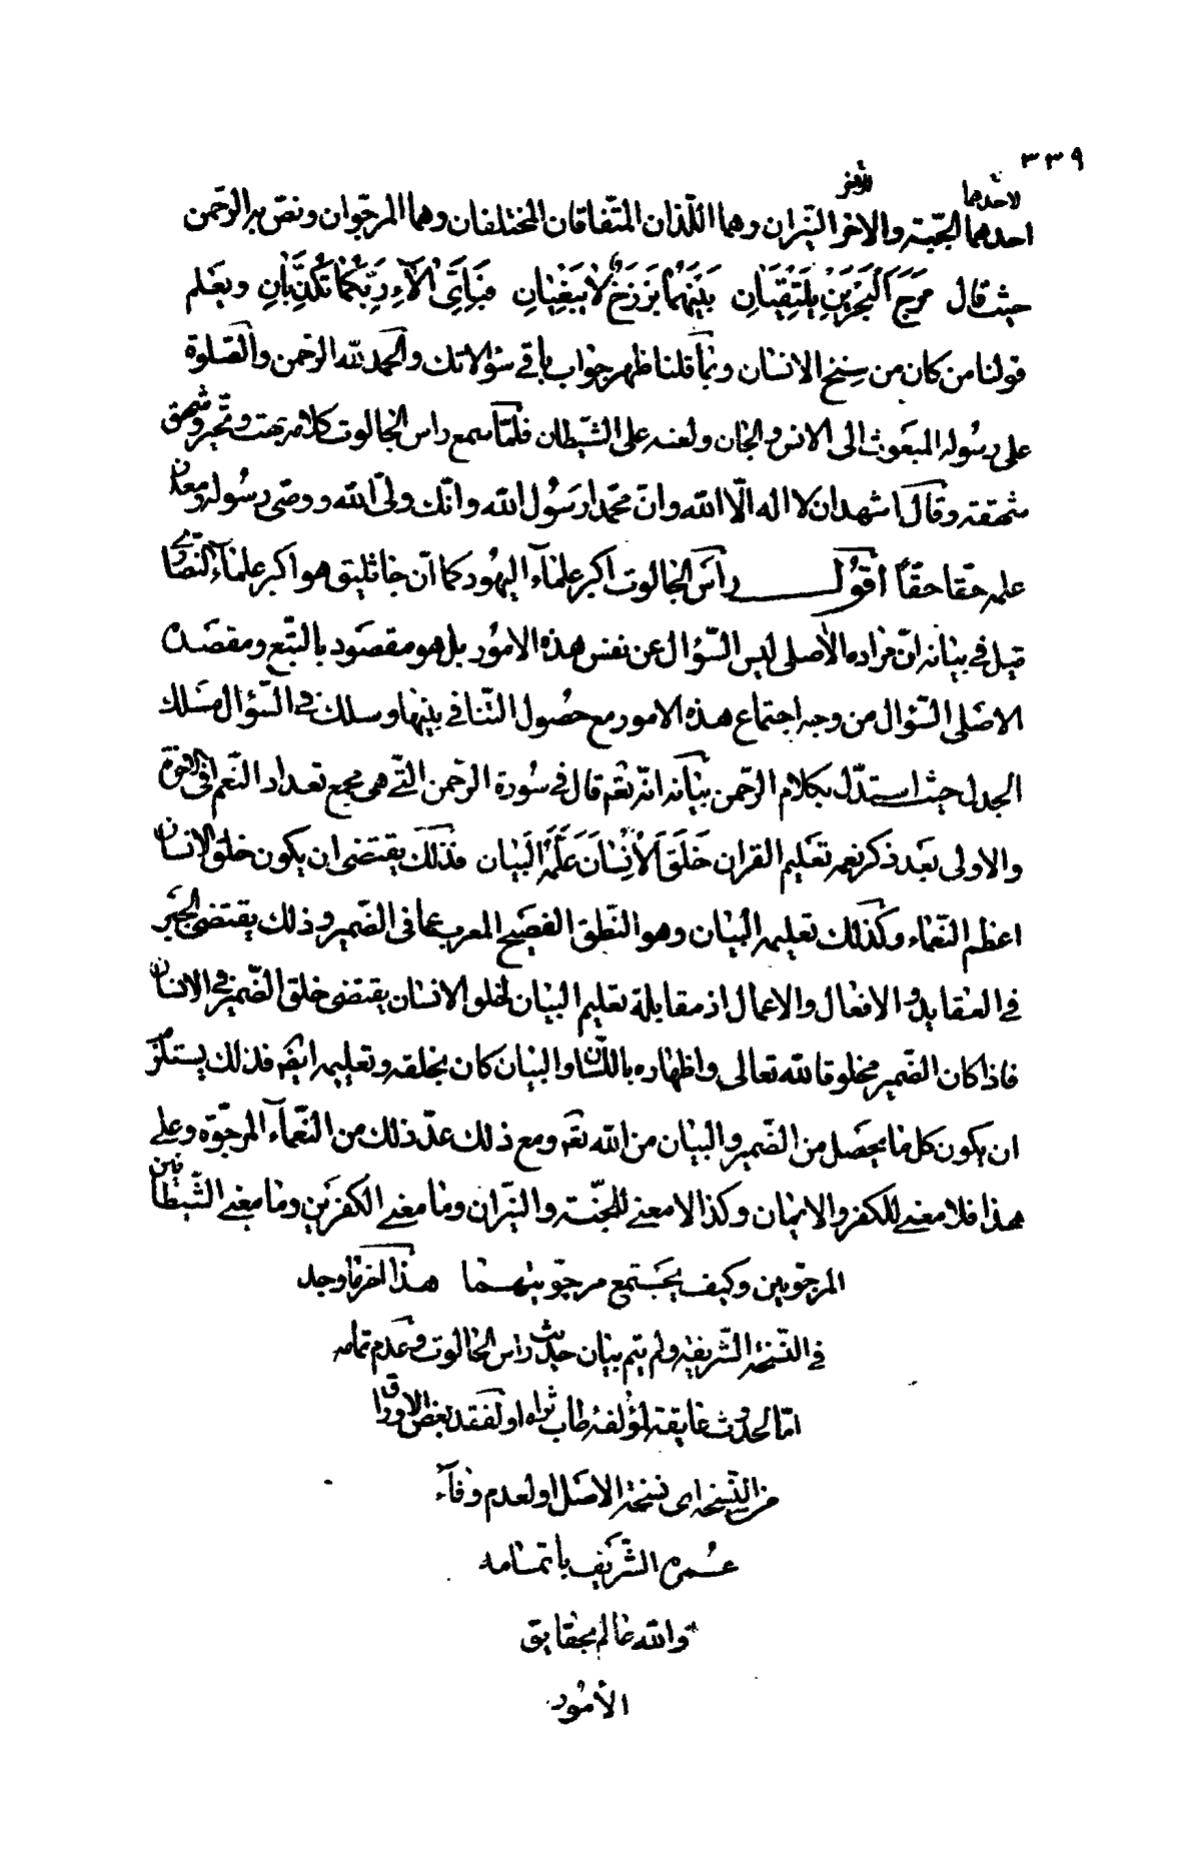 ٣٣٩
لاحدهما للاخر
احدهما الجنة والاخر النيران وهما اللّذان المتّفاقان المختلفان وهما المرجوّان ونصّ به الرحّمن
حيث قال مَرَجَ اَلْبَحْرَيْنِ يَلْتَقِيَانِ بَيْنَهُمَا بَرْزَخٌ لاٰ يَبْغِيٰانِ فَبِاَيِّ اٰلآءِ رَبِّكُمٰا تُكَذِّبٰانِ ويعلم
قولنا من كان من سِنخ الانسٰان وبمٰا قلنا ظهر جوٰاب باقى سؤالاتك والحمد للّه الرحمن والصّلوة
على رسُوله المبعَوث الى الانس والجٰان ولعنه على الشّيطان فلمّا سمع راس الجالوت كلامه بهت وتحّير وشهق
شهقة وقال اشهد ان لا اله الّا اللّه وانّ محمّدا رسُول اللّه وانّك ولىّ اللّه ووصّى رسُوله ومعدن
علمه حقّا حقّاً اقوُل راسَ الجالوت اكبر علمٰآء اليهُود كما انّ جاثليق هو اكبر علمٰآء النصٰارى
قيل فى بيٰانه انّ مرٰاده الأصلى ليس السّؤال عن نفس هذه الامُور بل هو مقصَود بالتّبع ومقصَده
الاصَلى السّؤال من وجه اجتماع هذه الامور مع حصُول التّنافى بينهٰا وسلك فى السّؤال مسَلك
الجدل حيث استدّل بكلام الرحّمن بيٰانه انّه تعٰم قال فى سُورة الرحّمن التّى هى مجمع تعداد النّعم فى الاخرة
والاولى بعَد ذكر نعمه تعَليم القران خَلَقَ اَلْاِنْسٰانَ عَلَّمَهُ اَلْبَيٰان فذلك يقتضى ان يكون خلق الانسان
اعظم النّعمٰاء وكذلك تعليمه البيٰان وهو النّطق الفصَيح المعرب عما فى الضّمير وذلك يقتضى الجَبر
فى العقٰايد والافعٰال والاعمال اذ مقابلة تعليم البيٰان لخلق الانسٰان يقتضى خلق الضّمير فى الانسٰان
فاذا كان الضّمير مخلوقا للّه تعٰالى واظهٰاره باللّسان والبيٰان كان بخلقه وتعليمه ايضٰم فذلك يستلزم
ان يكون كل مٰا يحصَل من الضّمير والبيٰان من اللّه تعٰم ومع ذلك عدّ ذلك من النعّمٰآء المرجوّة وعلى
هذا فلا معنى للكفر والايمٰان وكذا لا معنى للجنّة والنيّران ومٰا معنى الكفرَين ومٰا معنى الشّيطٰانين
المرجوّيين وكيف يجَتمع مرجوّ ينهمٰا هذا اٰخر مٰا وجد
فى النّسخة الشّريفة ولم يتم بيٰان حديث رٰاس الجٰالوت وعَدم تمامه
امّا لحدوث عٰايقة لمؤلفهٔ طابَ ثراه او لفقد بعض الاوراق
من النّسخة اى نسخة الاصَل او لعدم وفٰآء
عُمره الشّريَف باتمٰامه
واللّه عٰالم بحقٰايق
الأمُور